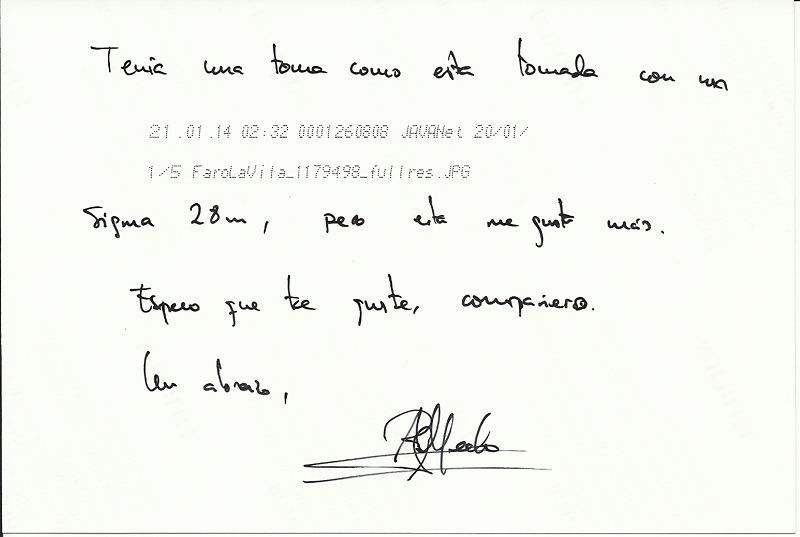 Tenia una toma como esta tomada con un
21.01.14 02:32 0001260808 JAVANet 20/01/
1/5 FaroLaVila_1179498_fullres.JPG
Sigma 28m, pero esta me gusta más.
Espero que te guste, compañero.
Un abrazo,
Alfredo